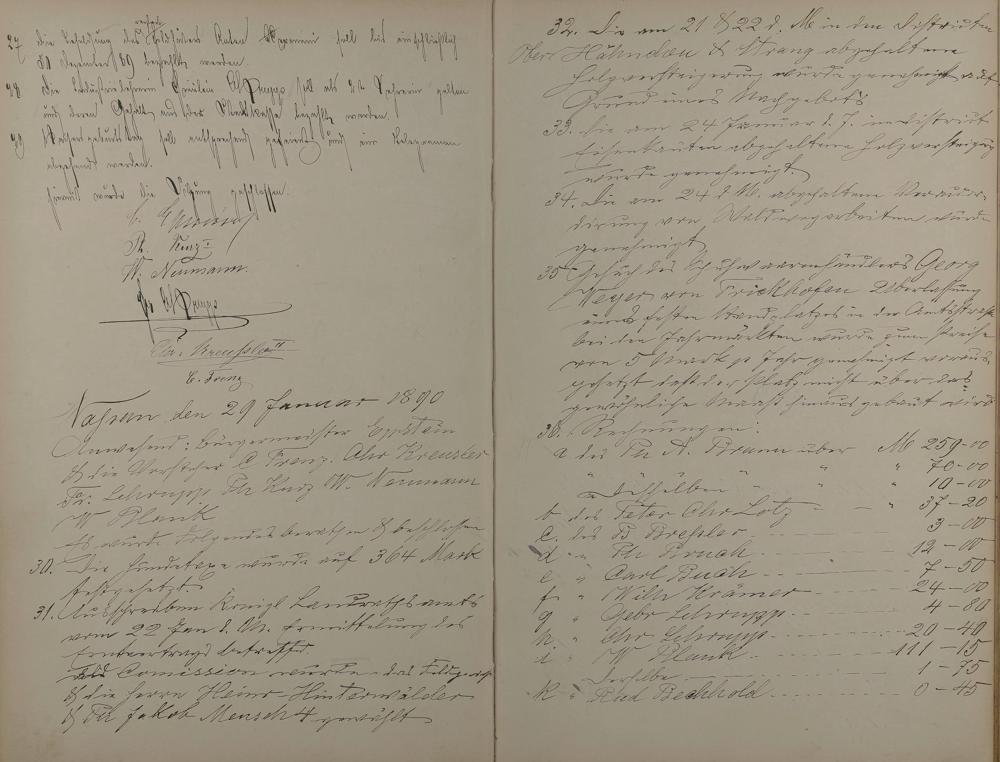 27 die Besoldung des Feldhüters Anton soll bis einschließlich
31 Dezember 89 bezahlt werden.
28 die Industrielehrerin Fräulein Schrupp soll als Lehrerin gelten
und deren Gehalt aus der Stadtkasse bezahlt werden.
29 Kaisers geburtstag soll entsprechend gefeiert und ein Telegramm
abgesandt werden.
hierauf wurde die Sitzung geschlossen.
Ph. Kunz I
W. Neumann.
Fr. Schrupp
Chr. Kreussler II
C. Frenz
Nassau den 29 Januar 1890
Anwesend: Bürgermeister Eppstein
& die Vorsteher C Frenz. Chr Kreusler
Fr. Schrupp Ph Kunz W. Neumann
W Plank
Es wurde folgendes berathen & beschlossen
30. Die Hundetaxe wurde auf 364 Mark
festgesetzt.
31. Ausschreiben Königl Landrathsamts
vom 22 Jan d. Js. Ermittelung des
Ernteertrags betreffd
als Comission wurde das Feldgericht
& die Herrn Heinr Hinterwälder
& Ph Jakob Mensch 4 gewählt
32. Die am 21 & 22 d. M in den Distrikten
Ober Hähnchen & Strang abgehaltene
Holzversteigerung wurde genehmigt auf
Grund eines Nachgebots
33. Die am 24 Januar d. J. im Distrikt
Eisenkauten abgehaltene Holzversteigerg
wurde genehmigt.
34. Die am 24 d M. abgehaltene Veraccor-
dirung von Waldwegarbeiten wurde
genehmigt
35 Gesuch des Schuhwaarenhändlers Georg
Meyer von Frickhofen Überlassung
eines festen Standplatzes in der Amtsstraße
bei den Jahrmärkten wurde zum Preise
von 5 Mark p Jahr genehmigt voraus-
gesetzt daß der Platz nicht über das
gewöhnliche Maaß hinaus gebaut wird
36. Rechnungen:
a des Ph A. Brunn über M 259-00
" " " " " 70-00
" Desselben " " 10-00
b des Peter Chr Lotz - - " 37-20
c. des B Bressler 3-00
d " Ph Bruch 12-00
e " Carl Buch 7-50
f " Wilh Krämer 24-00
g " Gebr Schrupp 4-80
h " Chr Schrupp 20-40
i " W Plank 111-15
Derselbe 1-75
k " Rud Bechhold 0-45